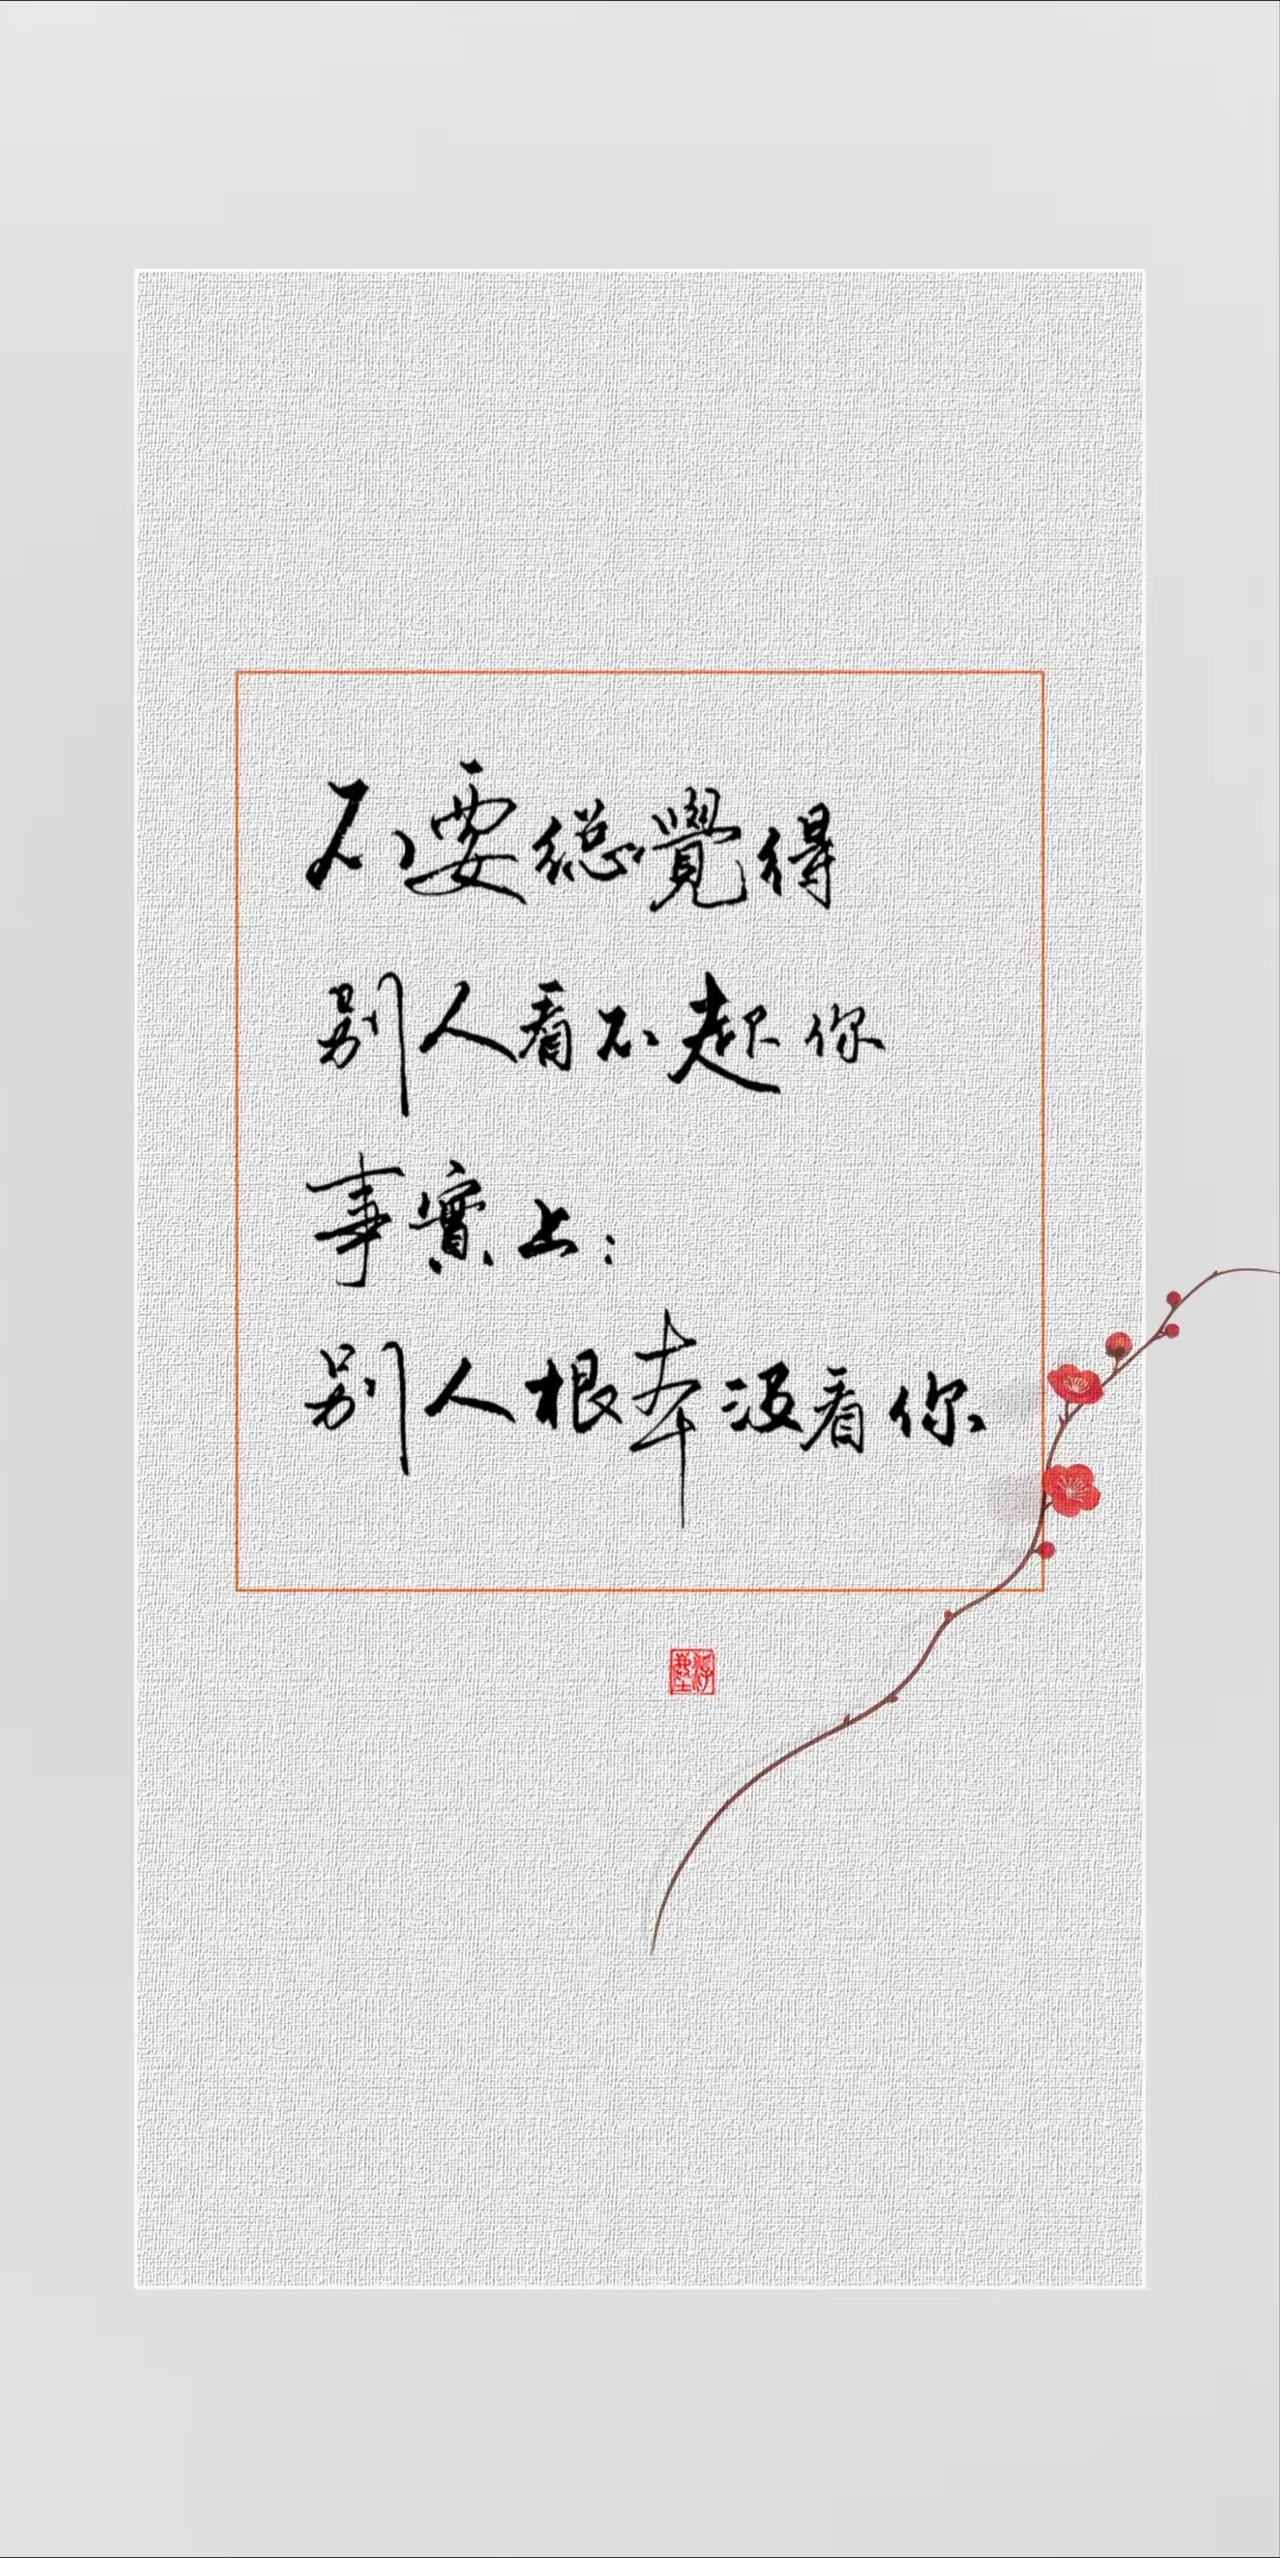 不要總覺得
别人看不起你
事實上：
别人根本沒看你